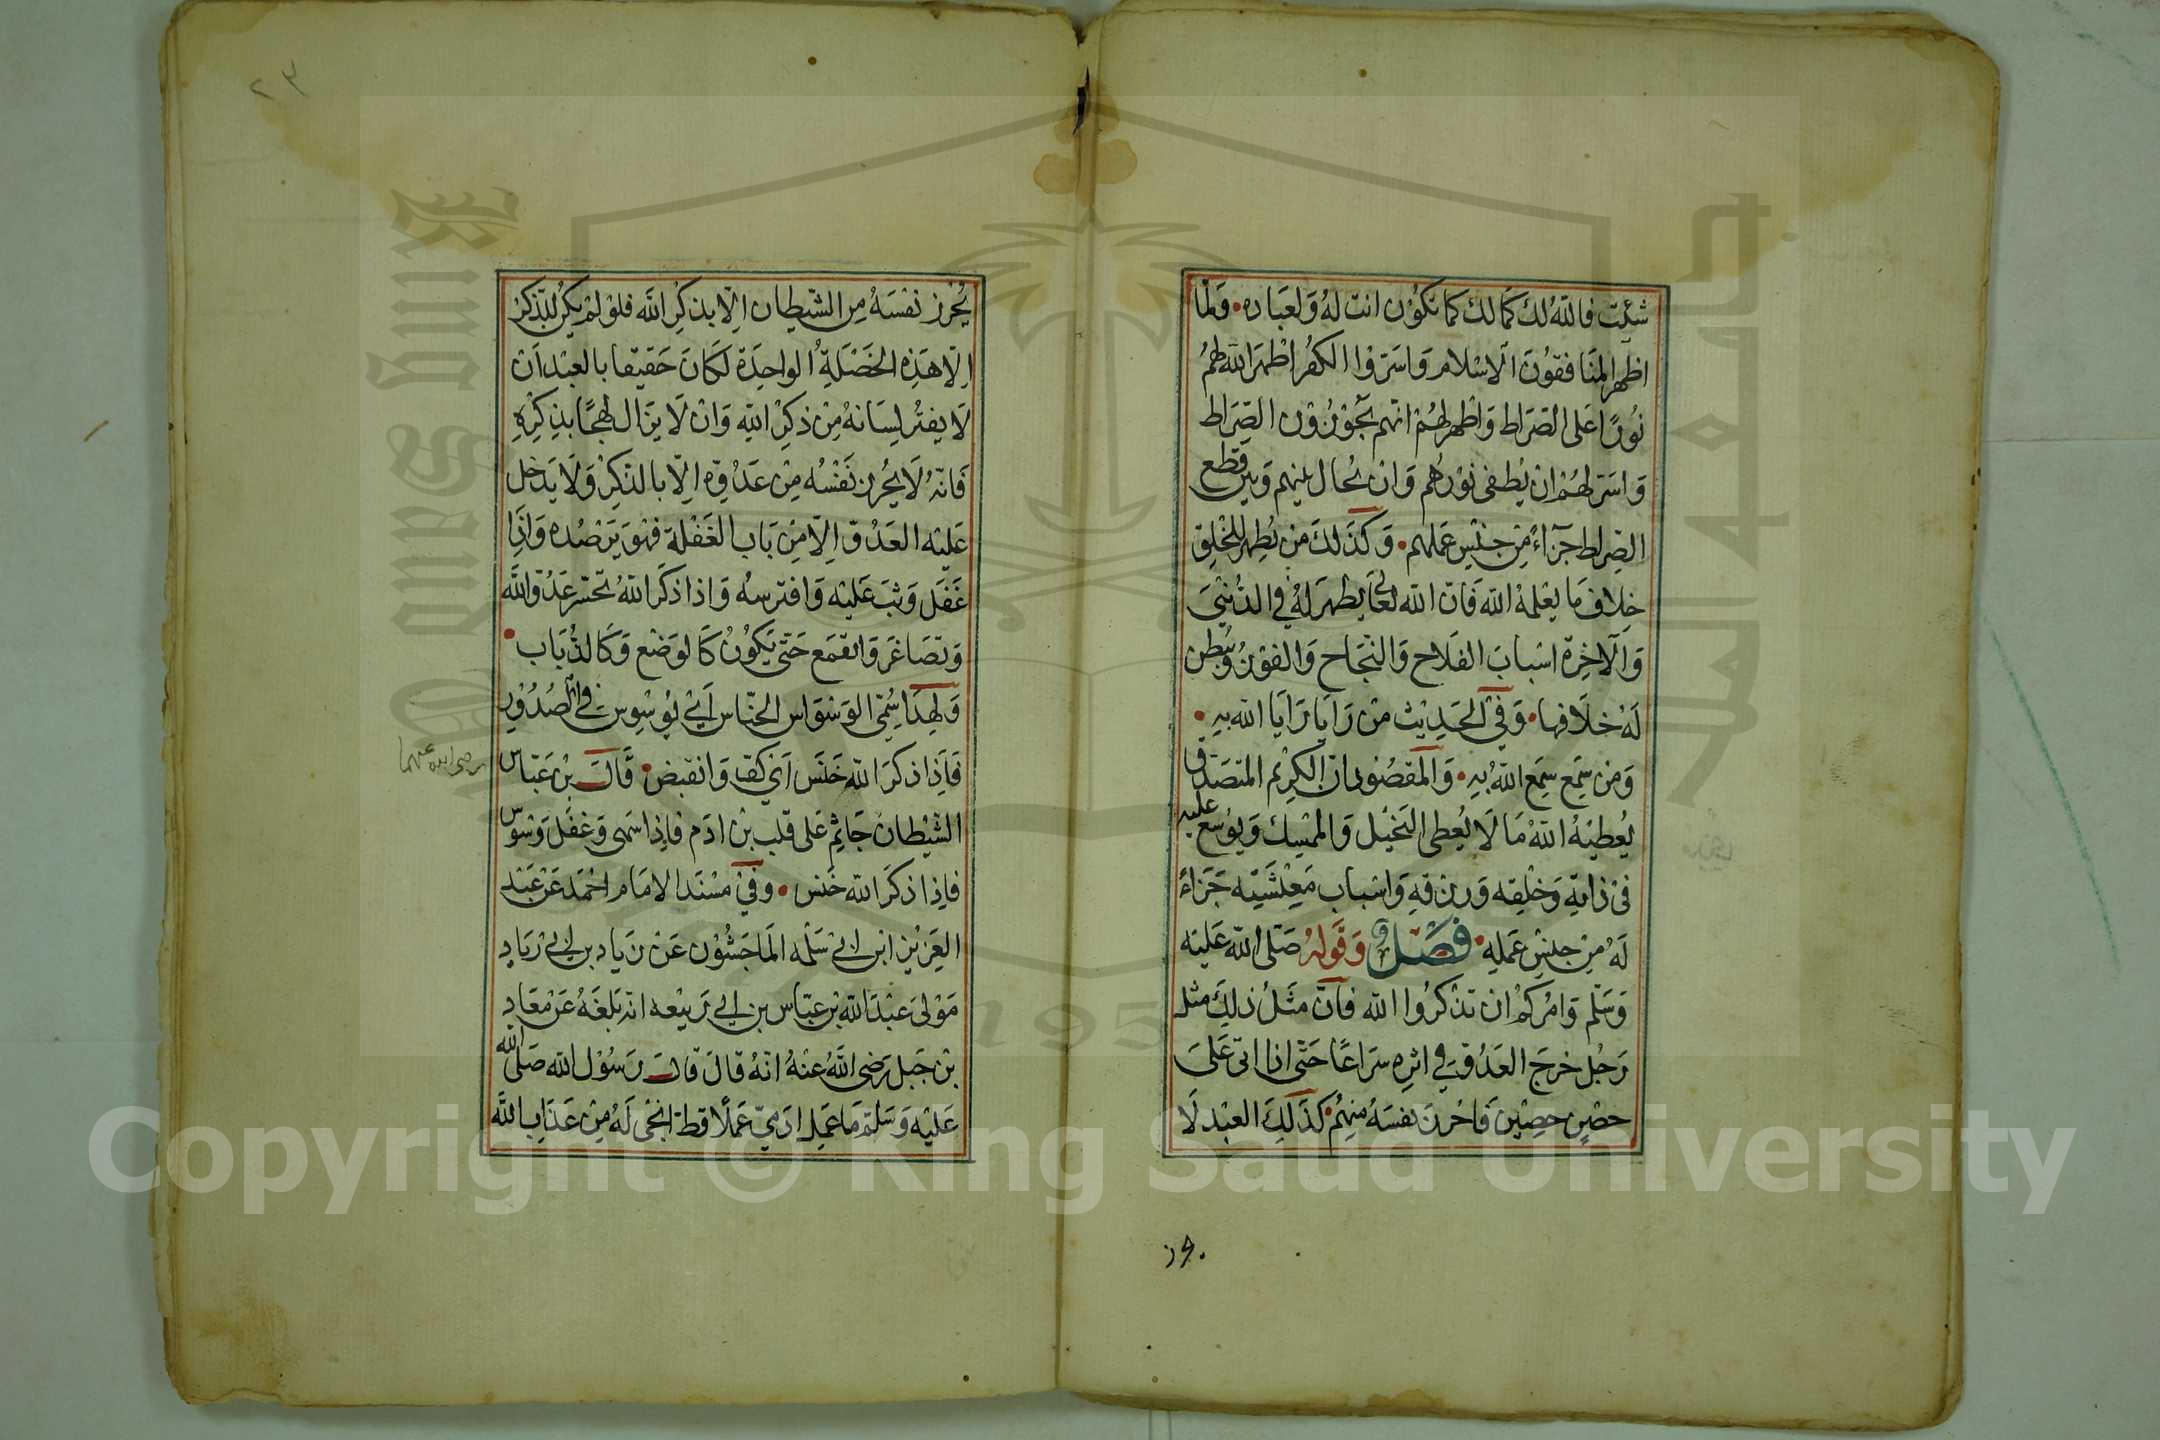 شئت فالله لك كما لك كما تكون انت له ولعباده • ولما
اظهر المنافقون الاسلام واسروا الكفر اظهر الله لهم
نورا على الصراط واظهر لهم انهم يجوزون الصراط
واسر لهم ان يطفى نورهم وان يحال بينهم وبين قطع
الصراط جزآء من جنس عملهم • وكذلك من يظهر للخلق
خلاف ما يعلمه الله فان الله تعالى يظهر له في الدنيى
والآخرة اسباب الفلاح والنجاح والفوز ويبطن
له خلافها • وفي الحديث من رايا رايا الله به •
ومن سمع سمع الله به • والمقصود ان الكريم المتصدق
يعطيه الله ما لا يعطى البخيل والممسك ويوسع عليه
في ذاته وخلقه ورزقه واسباب معيشته جزاء
له من جنس عمله • فصل و وقوله صلى الله عليه
وسلم وامركم ان تذكروا الله فان مثل ذلك مثل
رجل خرج العدو في اثره سراعا حتى اذا اتى على
حصن حصين فاحرز نفسه منهم • كذلك العبد لا
يحرز
٢٣
يحرز نفسه من الشيطان الا بذكر الله فلو لم يكن للذكر
الا هذه الخصلة الواحدة لكان حقيقا بالعبد ان
لا يفتر لسانه من ذكر الله وان لا يزال لهجا بذكره
فانه لا يحرز نفسه من عدوه الا بالذكر ولا يدخل
عليه العدو الا من باب الغفلة فهو يرصده واذا
غفل وثب عليه وافترسه واذا ذكر الله تخسر عدو الله
وتصاغر وانقمع حتى يكون كالوضع وكالذباب •
ولهذا سمي الوسواس الخناس اي يوسوس في الصدور
فاذا ذكر الله خنس اي كف وانقبض • قال بن عباس
رضى الله عنهما
الشيطان جاثم على قلب بن ادم فاذا سهى وغفل وسوس
فاذا ذكر الله خنس • وفي مسند الامام احمد عن عبد
العزيز ابن ابي سلمه الماجشون عن زياد بن ابي زياد
مولى عبد الله بن عباس بن ابي ربيعه انه بلغه عن معاد
بن جبل رضى الله عنه انه قال قال رسول الله صلى الله
عليه وسلم ما عمل ادمي عملا قط انجى له من عذاب الله
Copyright © King Saud University
1957